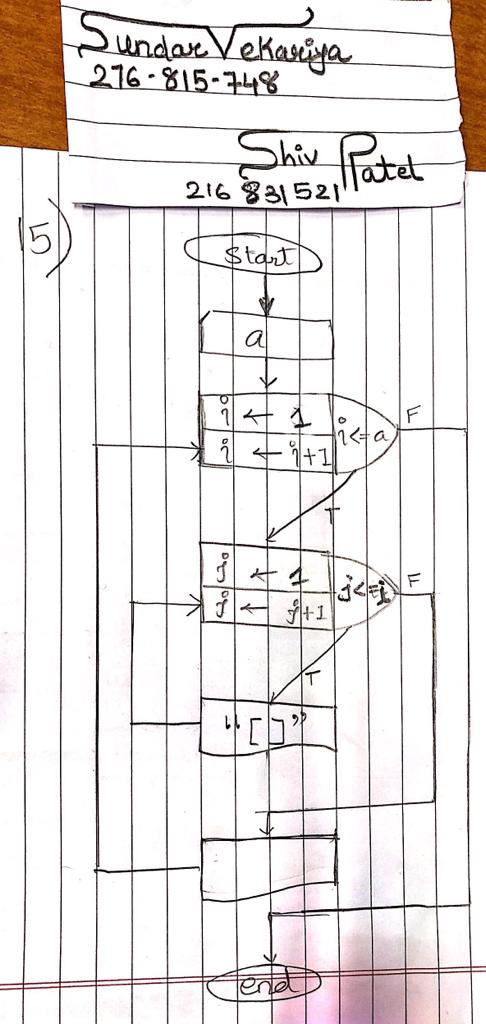 Sundar Vekariya
276-815-748
Shiv Patel
216 831521
15)
Start
a
i ← 1
i ← i+1
i<=a
F
T
j ← 1
j ← j+1
j<=i
F
T
"[]"
end